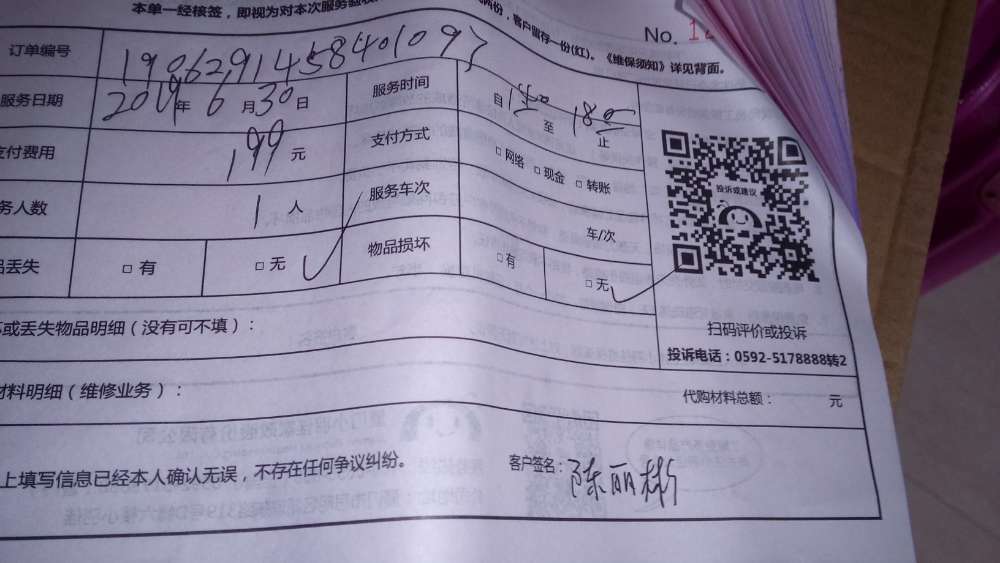 本单一经核签，即视为对本次服务验收
两份，客户留存一份(红)。《维保须知》详见背面。
No. 1
订单编号 1906291458401093
服务日期 2019年 6 月 30 日 服务时间 自 至 18 止
支付费用 199 元 支付方式 □ 网络 □ 现金 □ 转账
务人数 1 人 服务车次 车/次
品丢失 □ 有 □ 无 ✓ 物品损坏 □ 有 □ 无 ✓
投诉或建议
扫码评价或投诉
投诉电话：0592-5178888转2
或丢失物品明细（没有可不填）：
材料明细（维修业务）： 代购材料总额： 元
上填写信息已经本人确认无误，不存在任何争议纠纷。 客户签名： 陈丽彬